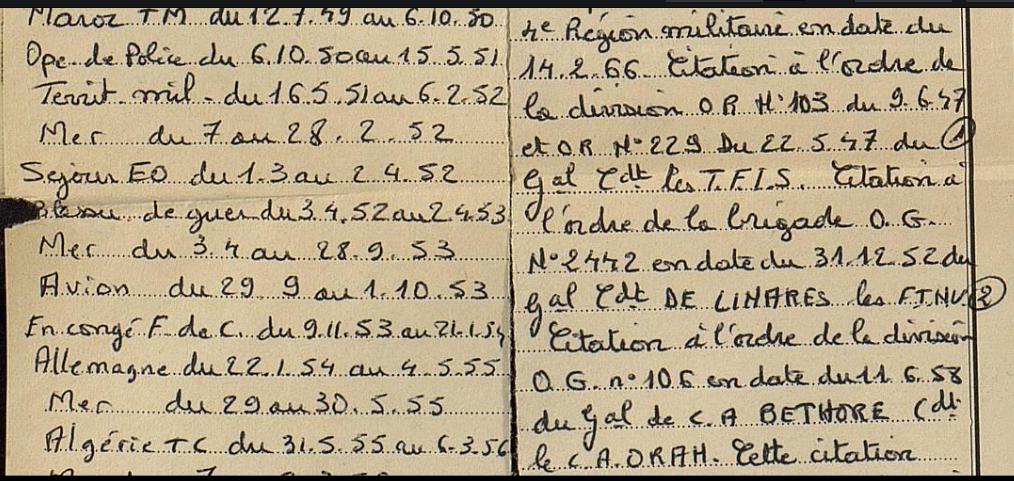 Maroc TM du 12.7.49 au 6.10.50
Ope. de Police du 6.10.50 au 15.5.51
Territ. mil. du 16.5.51 au 6.2.52
Mer du 7 au 28.2.52
Sejour EO du 1.3 au 2.4.52
de guer. du 3.4.52 au 2.4.53
Mer du 3.4 au 28.9.53
Avion du 29 9 au 1.10.53
En congé F. de C. du 9.11.53 au 21.1.54
Allemagne du 22.1.54 au 4.5.55
Mer du 29 au 30.5.55
Algérie TC du 31.5.55 au 6.3.56
4e Région militaire en date du
14.2.66 Citation à l'ordre de
la division O R N°103 du 9.6.47
et OR N°229 Du 22.5.47 du 1
Gal Cdt les T.F.I.S. Citation à
l'ordre de la brigade O.G.
N°2442 en date du 31.12.52 du
Gal Cdt DE LINARES les F.T.N.V 2
Citation à l'ordre de la division
O.G. n°106 en date du 11.6.58
du Gal de C.A BETHORE Cdt
le C.A.ORAN. Cette citation